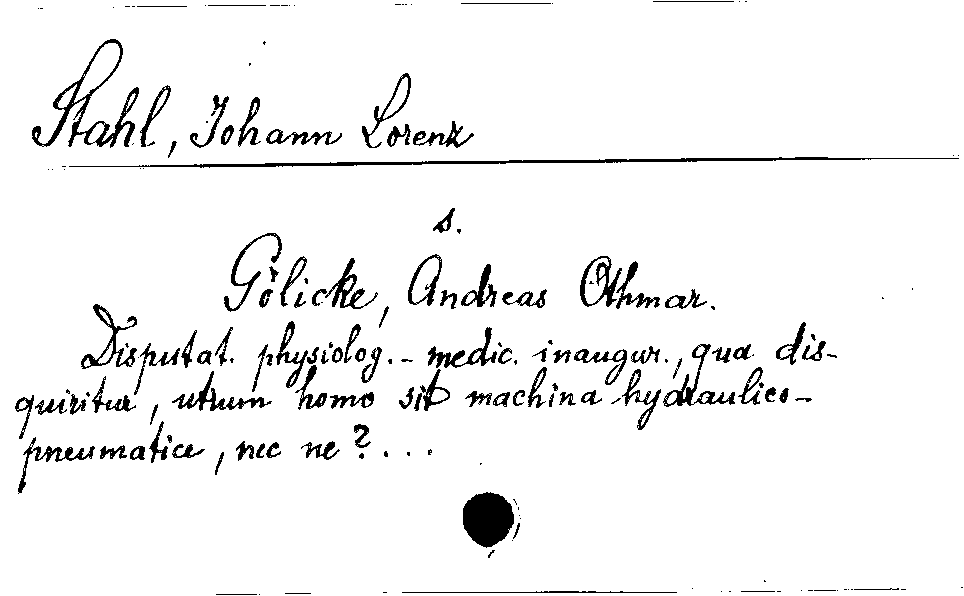 Stahl, Johann Lorenz
s.
Gölicke, Andreas Othmar.
Disputat. physiolog. - medic. inaugur., qua dis-
quiritur, utrum homo sit machina hydraulico-
pneumatica, nec ne?...